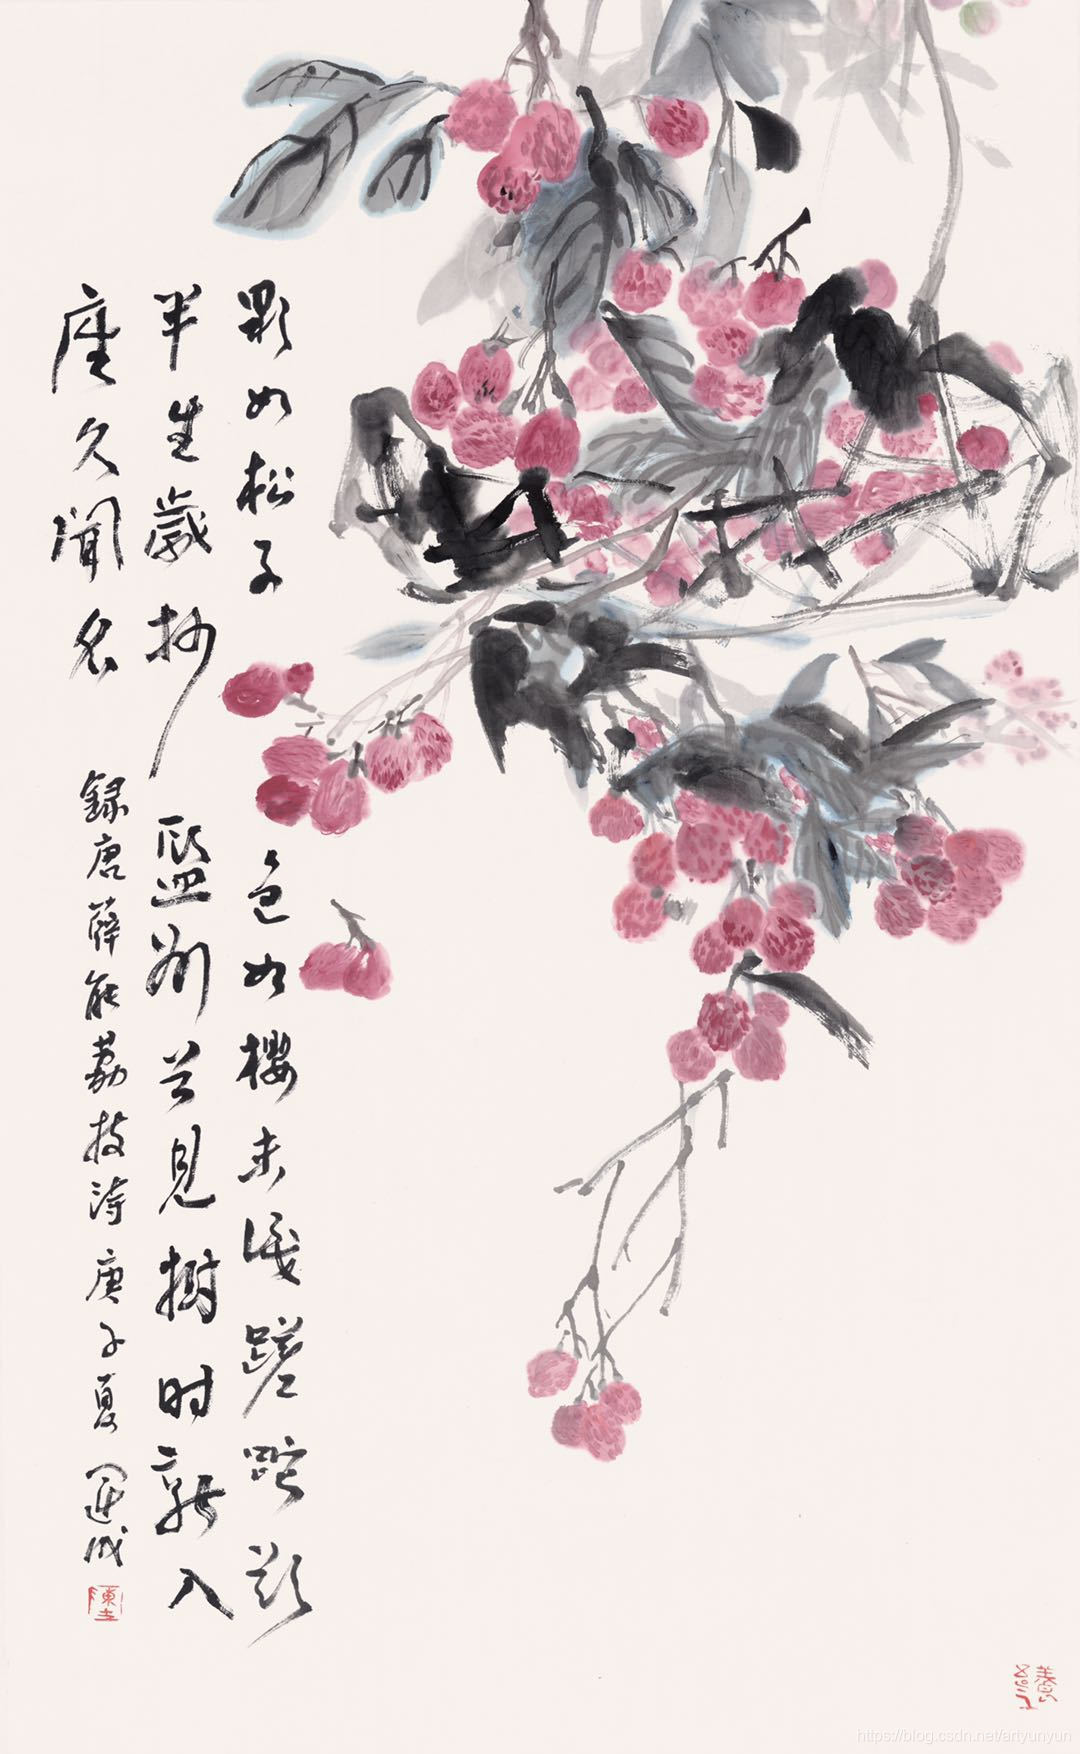 顆如松子色如櫻未識蹉跎欲
半生歲杪監州曾見樹时新入
座久聞名 録唐薛能荔枝詩庚子夏運成
https://blog.csdn.net/artyunyun